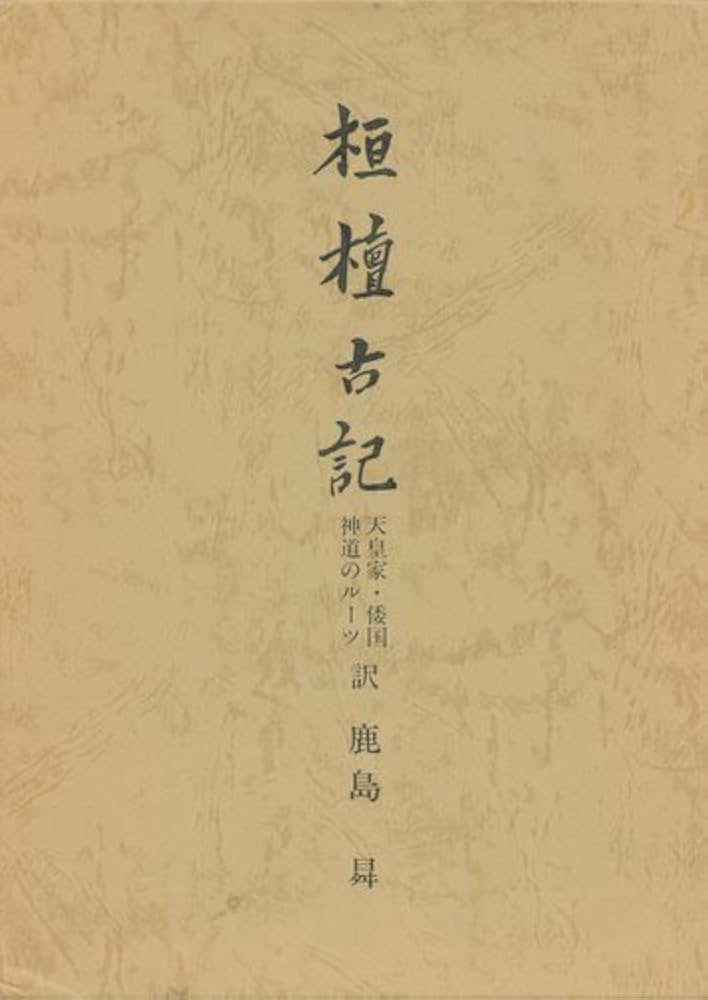 桓檀古記
天皇家・倭国
神道のルーツ
訳 鹿島 曻